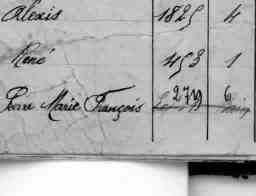 Alexis 1825 4
René 453 1
Pierre Marie François 279 6